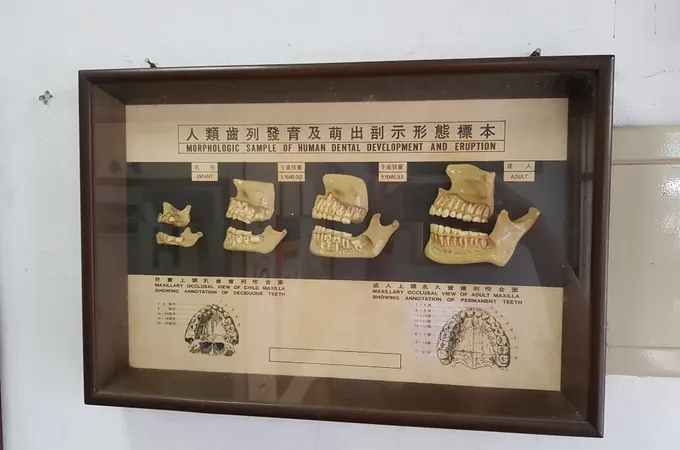 人類齒列發育及萌出剖示形態標本
MORPHOLOGIC SAMPLE OF HUMAN DENTAL DEVELOPMENT AND ERUPTION
乳兒
INFANT
5歲孩童
5 YEARS OLD
9歲孩童
9 YEARS OLD
成人
ADULT
兒童上顎乳齒齒列咬合面
MAXILLARY OCCLUSAL VIEW OF CHILD MAXILLA
SHOWING ANNOTATION OF DECIDUOUS TEETH
成人上顎永久齒齒列咬合面
MAXILLARY OCCLUSAL VIEW OF ADULT MAXILLA
SHOWING ANNOTATION OF PERMANENT TEETH